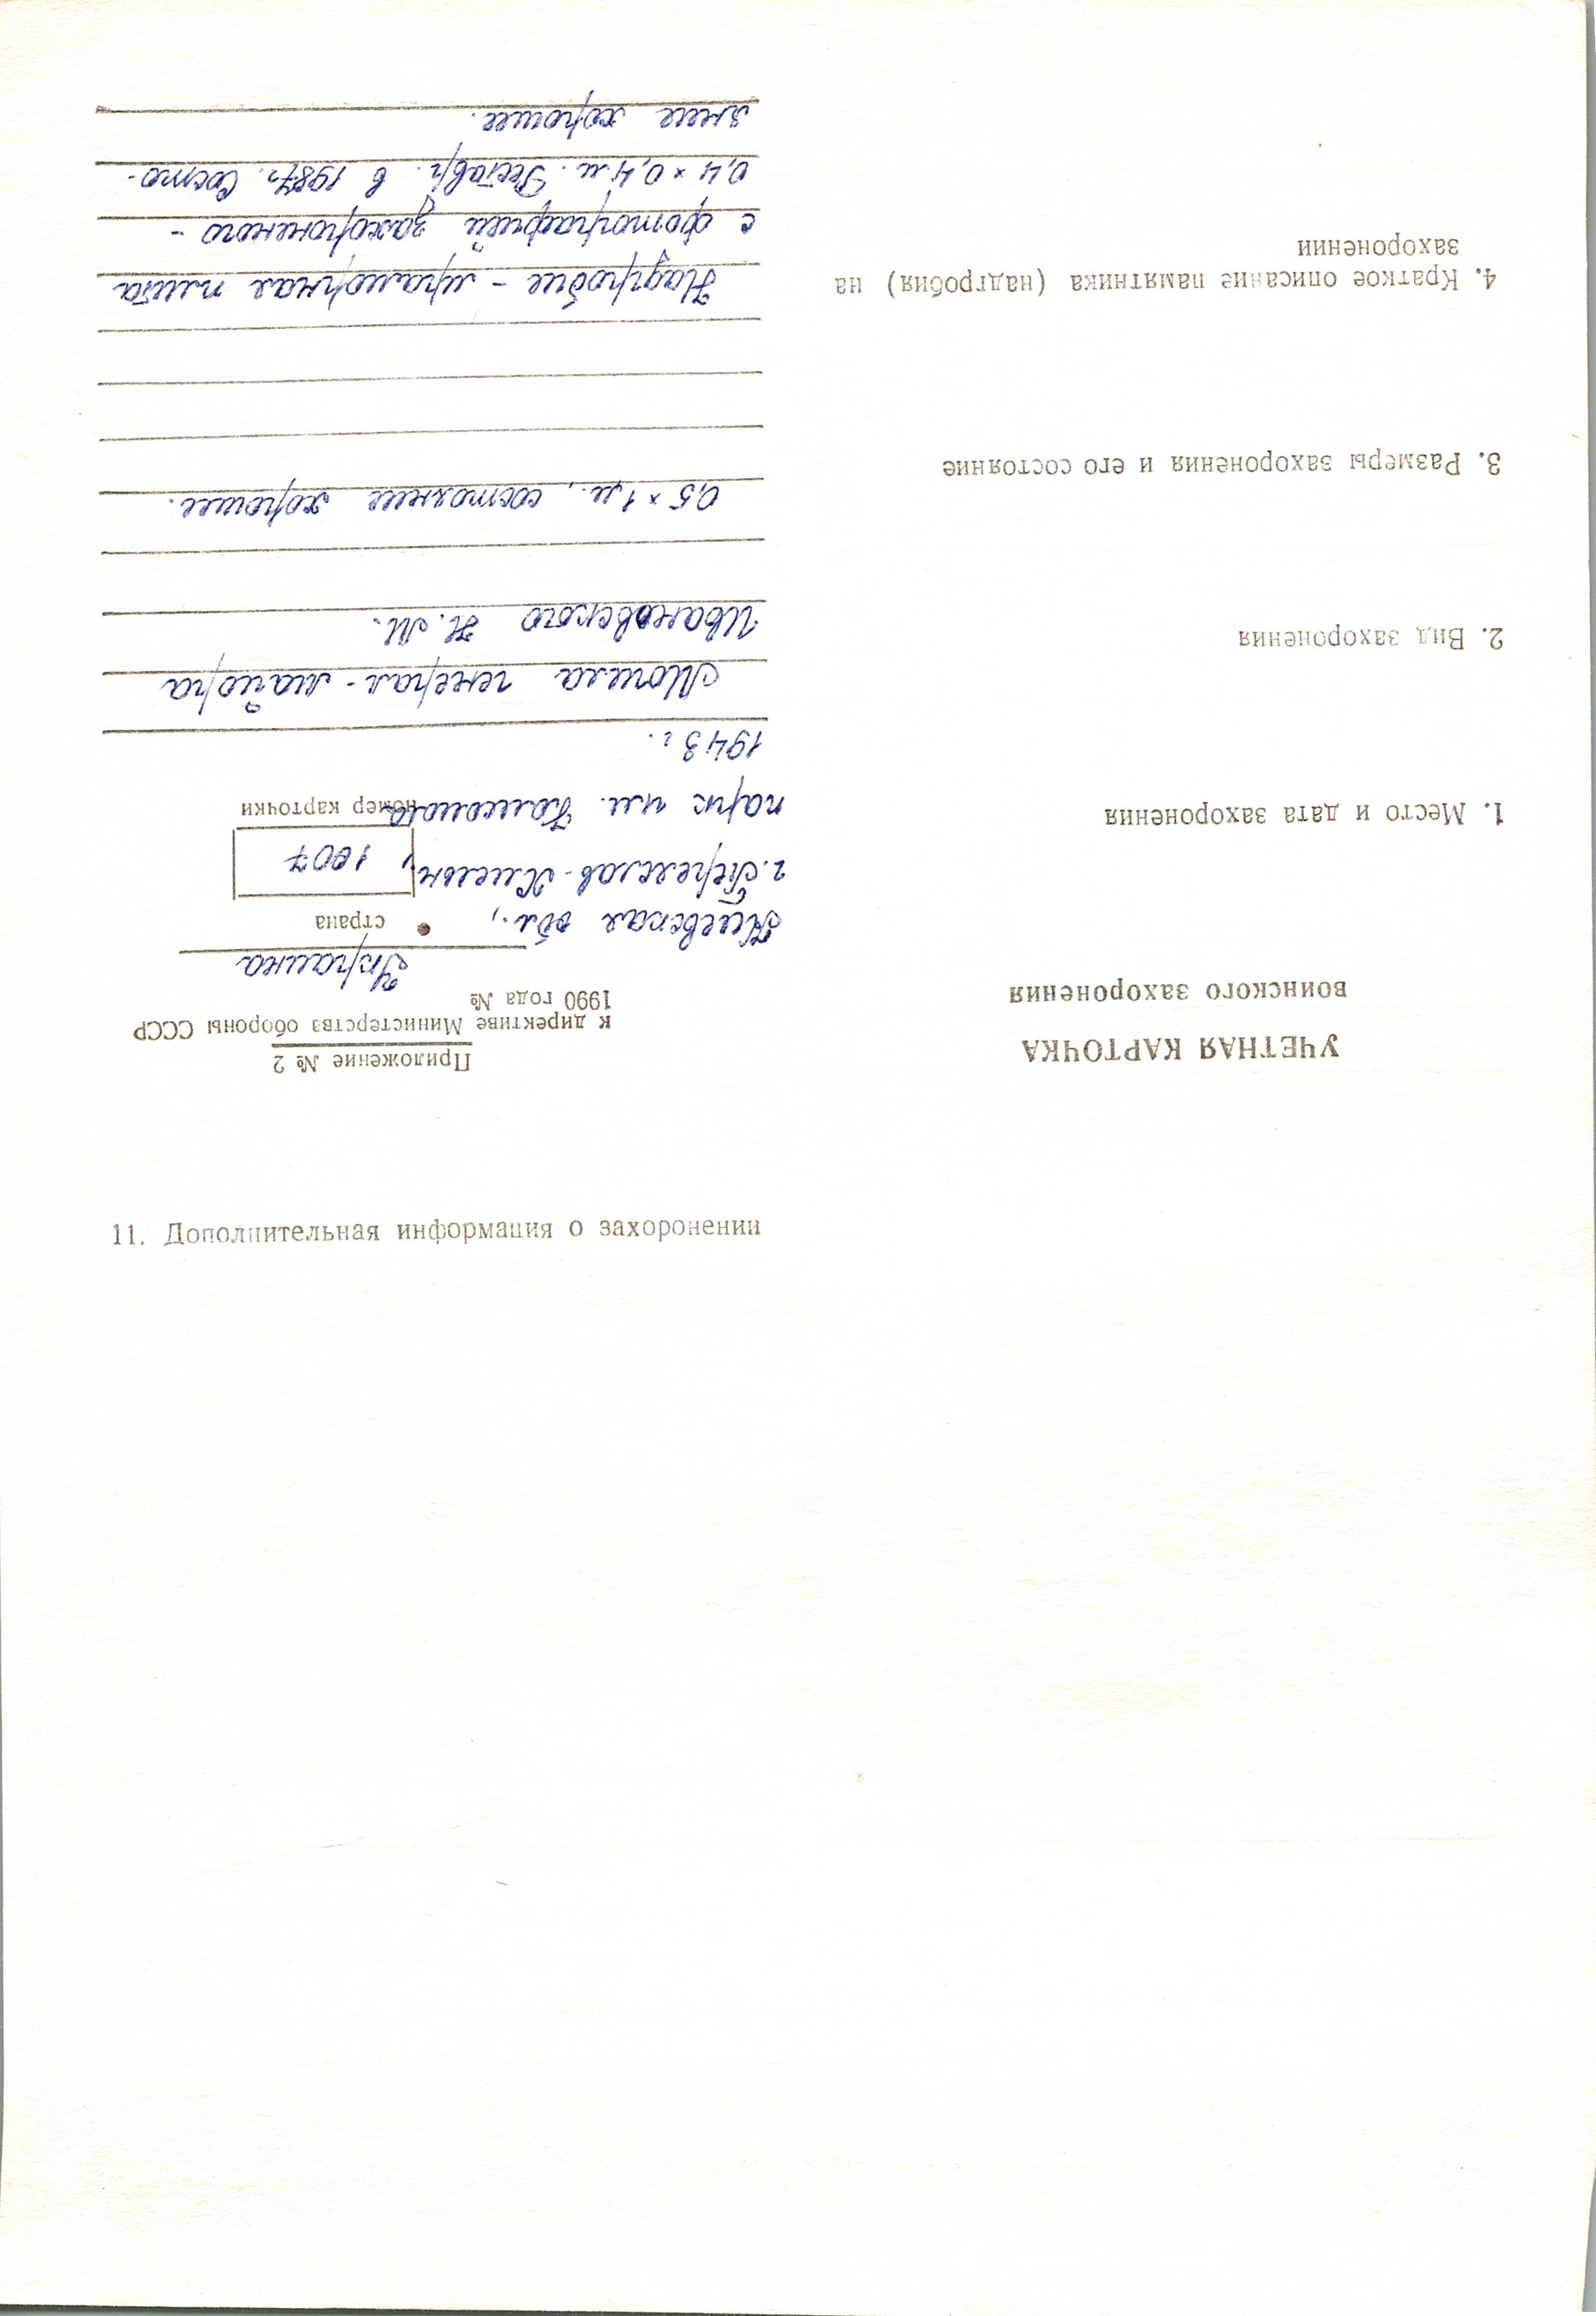 Приложение № 2
к директиве Министерства обороны СССР
1990 года №
УЧЕТНАЯ КАРТОЧКА
воинского захоронения
Украина
страна
1007
номер карточки
1. Место и дата захоронения
Киевская обл.,
г. Переяслав-Хмельн,
парк им. Комсомола
1943 г.
2. Вид захоронения
Могила генерал-майора
Ивановского Н. М.
3. Размеры захоронения и его состояние
0,5 × 1 м., состояние хорошее.
4. Краткое описание памятника (надгробия) на
захоронении
Надгробие – мраморная плита
с фотографией захороненого –
0,4 × 0,4 м. Реставр. в 1987г. Состо-
яние хорошее.
11. Дополнительная информация о захоронении